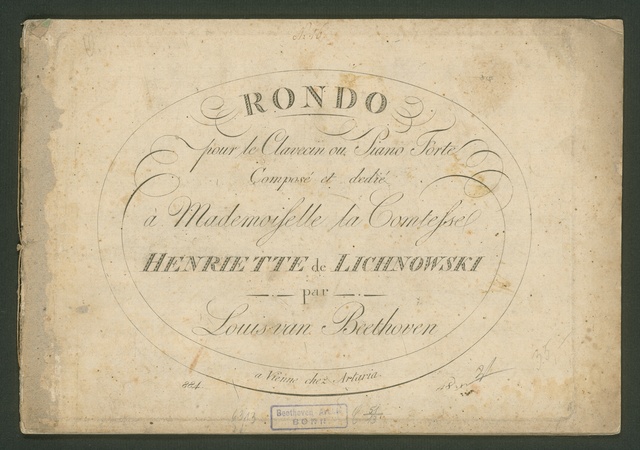 RONDO
pour le Clavecin ou Piano Forte
Composé et dedié
à Mademoiselle la Comtesse
HENRIETTE de LICHNOWSKI
par
Louis van Beethoven
a Vienne chez Artaria
Beethoven
BONN